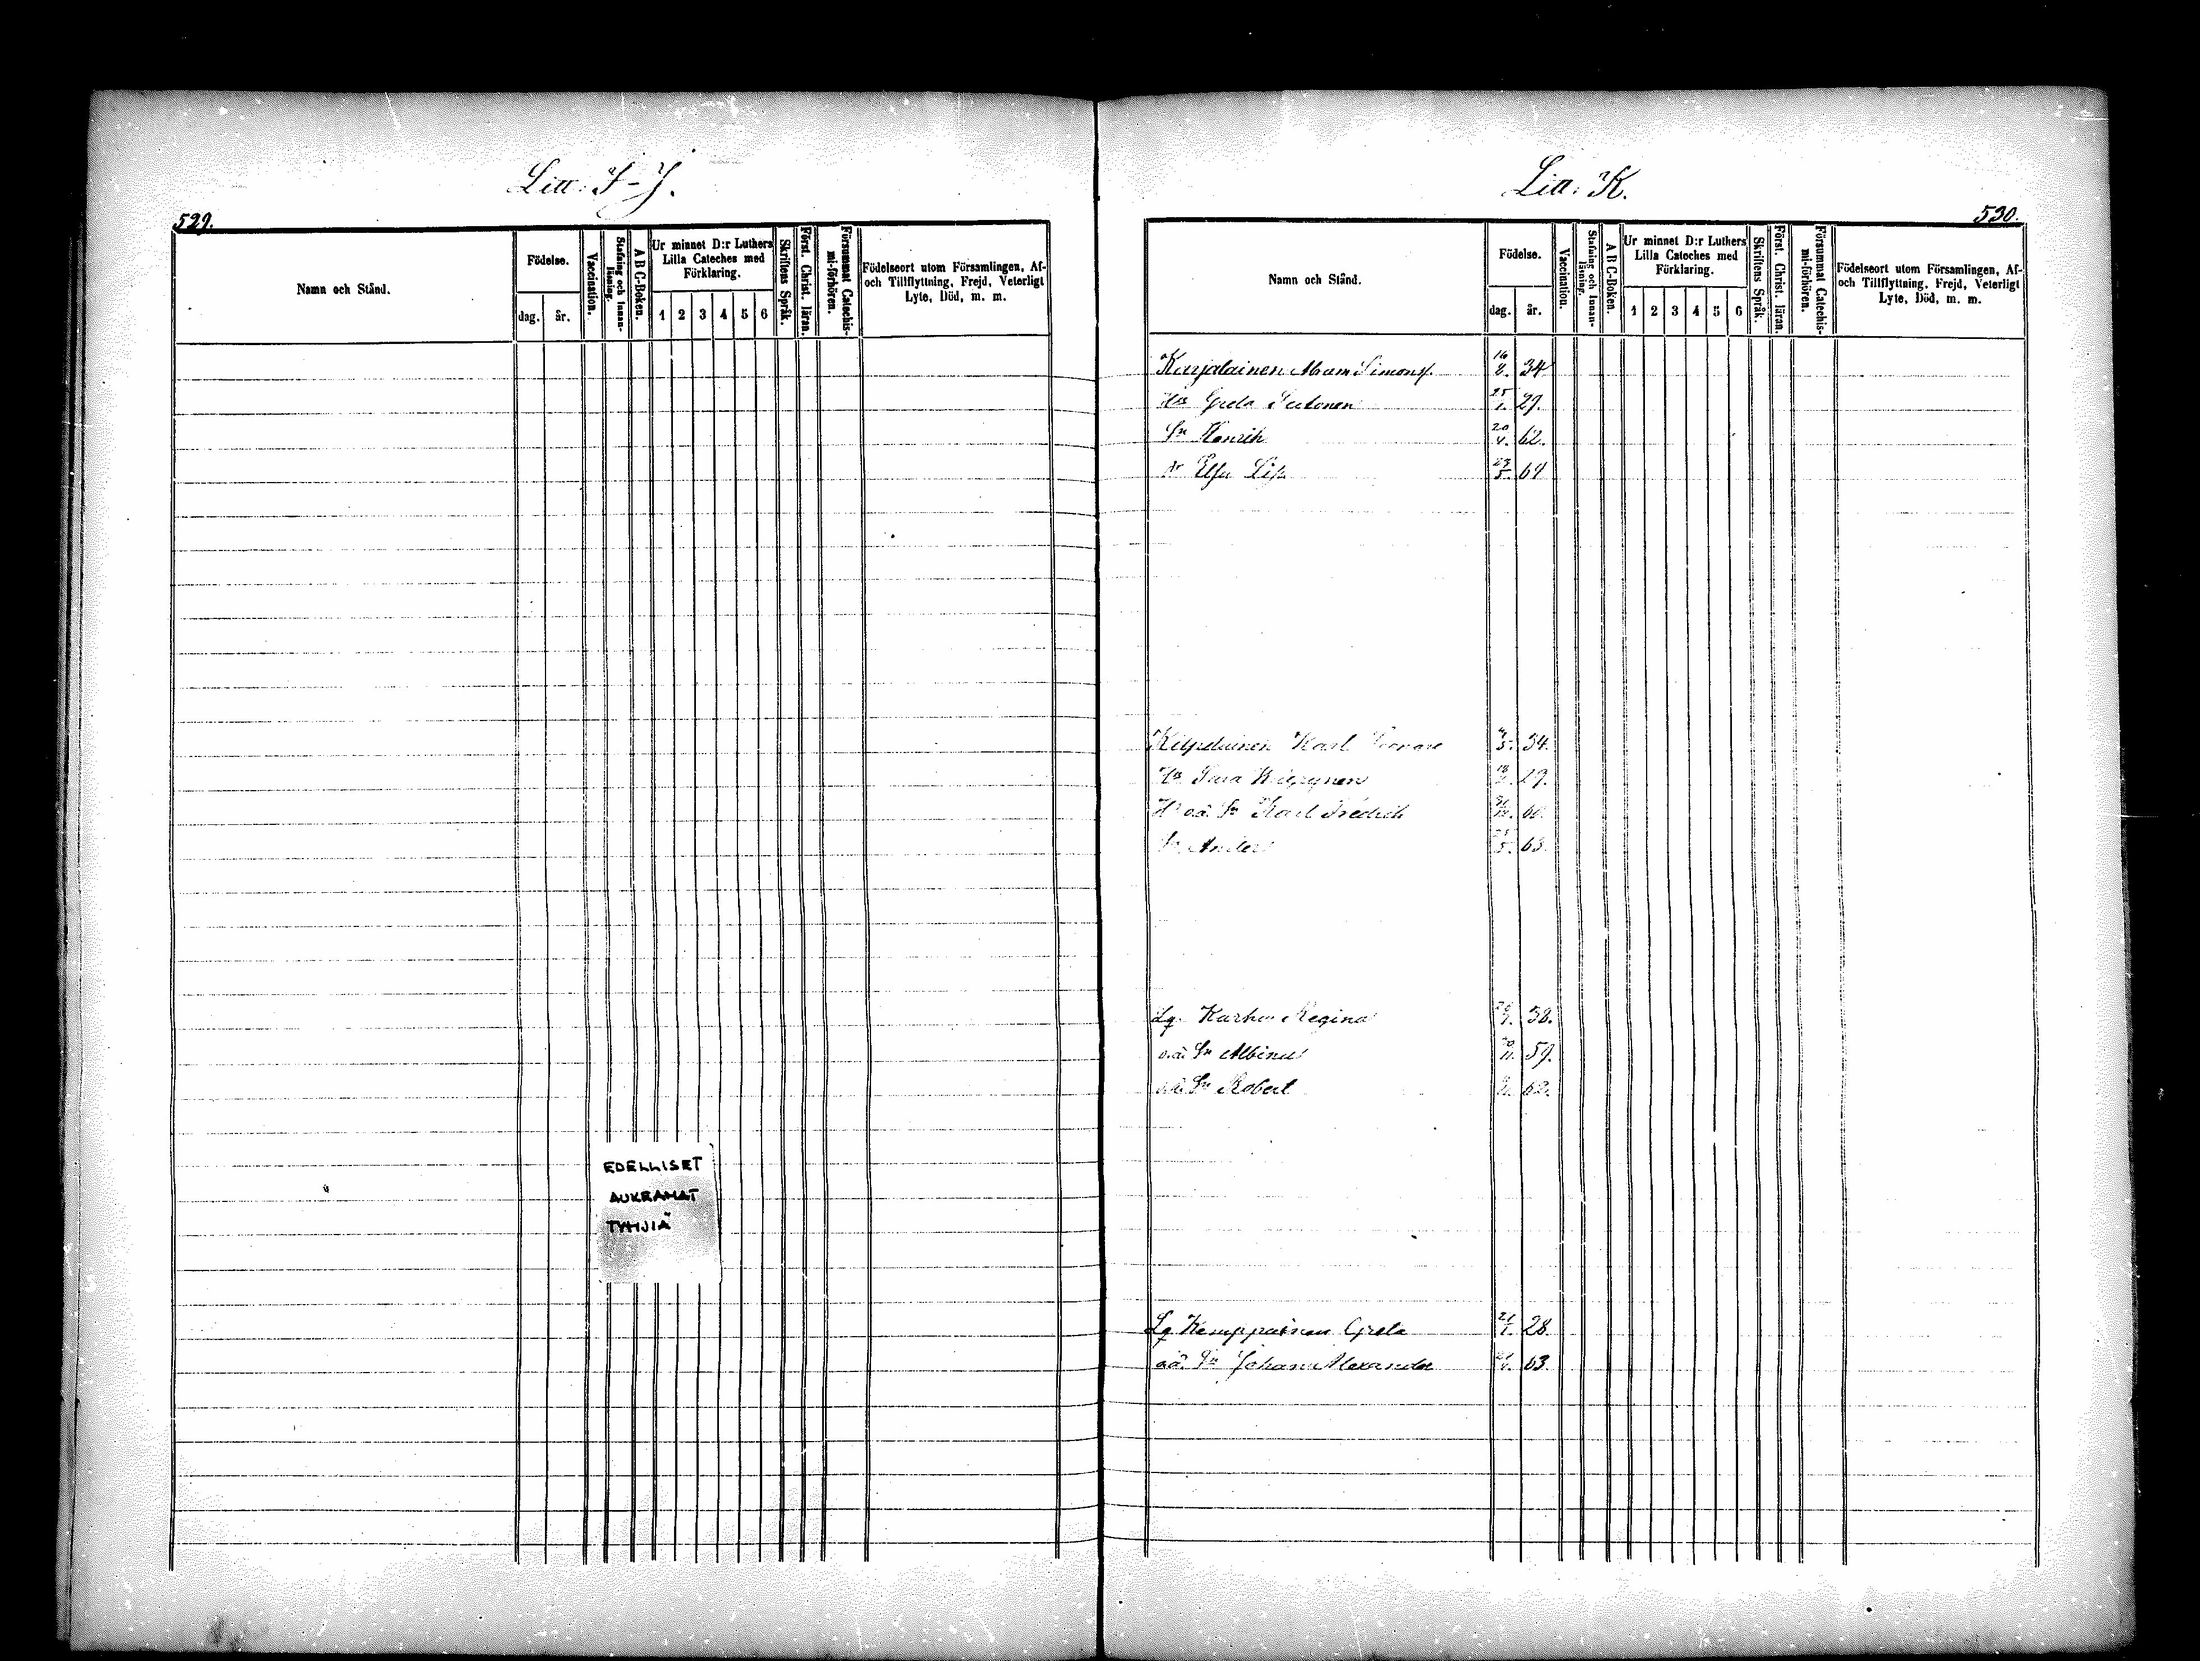 Litt: I-J.
529.
Namn och Stånd.
Födelse.
dag.
år.
Vaccination.
Stafning och Innanläsning.
A B C-Boken.
Ur minnet D:r Luthers
Lilla Cateches med
Förklaring.
1 2 3 4 5 6
Skriftens Språk.
Först. Christ. läran.
Försummat Catechismi-förhören.
Födelseort utom Församlingen, Af-
och Tillflyttning, Frejd, Veterligt
Lyte, Död, m. m.
EDELLISET
AUKEAMAT
TYHJIÄ
Litt: K.
530.
Namn och Stånd.
Födelse.
dag.
år.
Vaccination.
Stafning och Innanläsning.
A B C-Boken.
Ur minnet D:r Luthers
Lilla Cateches med
Förklaring.
1 2 3 4 5 6
Skriftens Språk.
Först. Christ. läran.
Försummat Catechismi-förhören.
Födelseort utom Församlingen, Af-
och Tillflyttning, Frejd, Veterligt
Lyte, Död, m. m.
Karjalainen Abram Simons. 16/8. 34
Hu Greta 25/1. 29.
Sn Henrik 20/4. 62.
dr Elsa Lisa 23/5. 64
Kilpeläinen Karl 34.
Hu 18 29.
o.ä. Sn Karl Fredrik 60.
Sn Anders 63.
Lg. Karhu Regina 38.
o.ä. Sn Albinus 59.
o.ä. Sn Robert 62.
Lg Kemppainen Greta 28.
o.ä. Sn Johan Alexander 63.